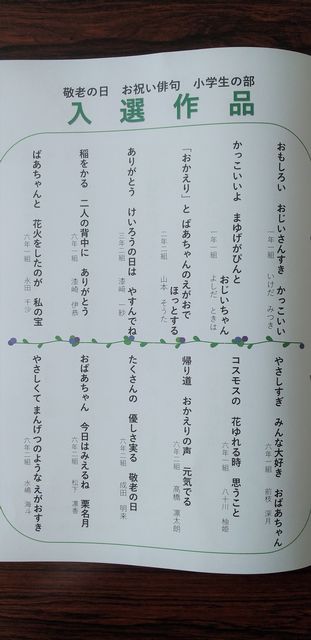 敬老の日 お祝い俳句 小学生の部
入選作品
おもしろい おじいさんすき かっこいい
一年一組 いけだ みつき
かっこいいよ まゆげがぴんと おじいちゃん
一年一組 よしだ ときは
「おかえり」と ばあちゃんのえがおで ほっとする
二年二組 山本 そうた
ありがとう けいろうの日は やすんでね
三年二組 漆崎 一紗
稲をかる 二人の背中に ありがとう
六年一組 漆崎 伊恭
ばあちゃんと 花火をしたのが 私の宝
六年一組 永田 千沙
やさしすぎ みんな大好き おばあちゃん
六年一組 前枝 深月
コスモスの 花ゆれる時 思うこと
六年一組 八十川 柚姫
帰り道 おかえりの声 元気でる
六年二組 高橋 凛太朗
たくさんの 優しさ実る 敬老の日
六年二組 成田 明来
おばあちゃん 今日はみえるね 栗名月
六年二組 松下 凛香
やさしくて まんげつのような えがおすき
六年二組 水嶋 海斗